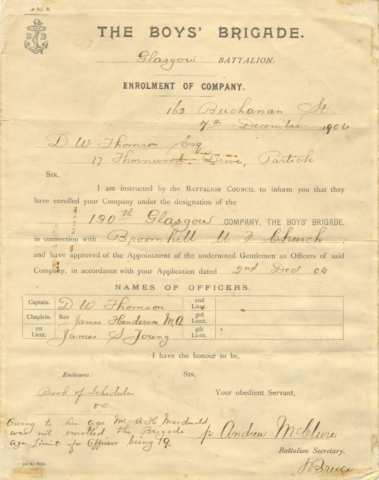 THE BOYS' BRIGADE.
Glasgow BATTALION.
ENROLMENT OF COMPANY.
162 Buchanan St
7th December 1904
D W Thomson Esq
17 Thornwood Drive, Partick
SIR,
I am instructed by the BATTALION COUNCIL to inform you that they
have enrolled your Company under the designation of the
180th Glasgow COMPANY, THE BOYS' BRIGADE,
in connection with Broomhill U F Church,
and have approved of the Appointment of the undernoted Gentlemen as Officers of said
Company, in accordance with your Application dated 2nd Dec 04
NAMES OF OFFICERS.
Captain. D W Thomson 2nd Lieut.
Chaplain. Rev James Henderson MA 3rd Lieut.
1st Lieut. James S Young 4th Lieut.
I have the honour to be,
Enclosures: SIR,
Book of Schedules Your obedient Servant,
&c
Owing to his age Mr A H Macdonald
was not enrolled the Brigade
age limit for Officers being 19.
p Andrew McClure
Battalion Secretary.
JBruce